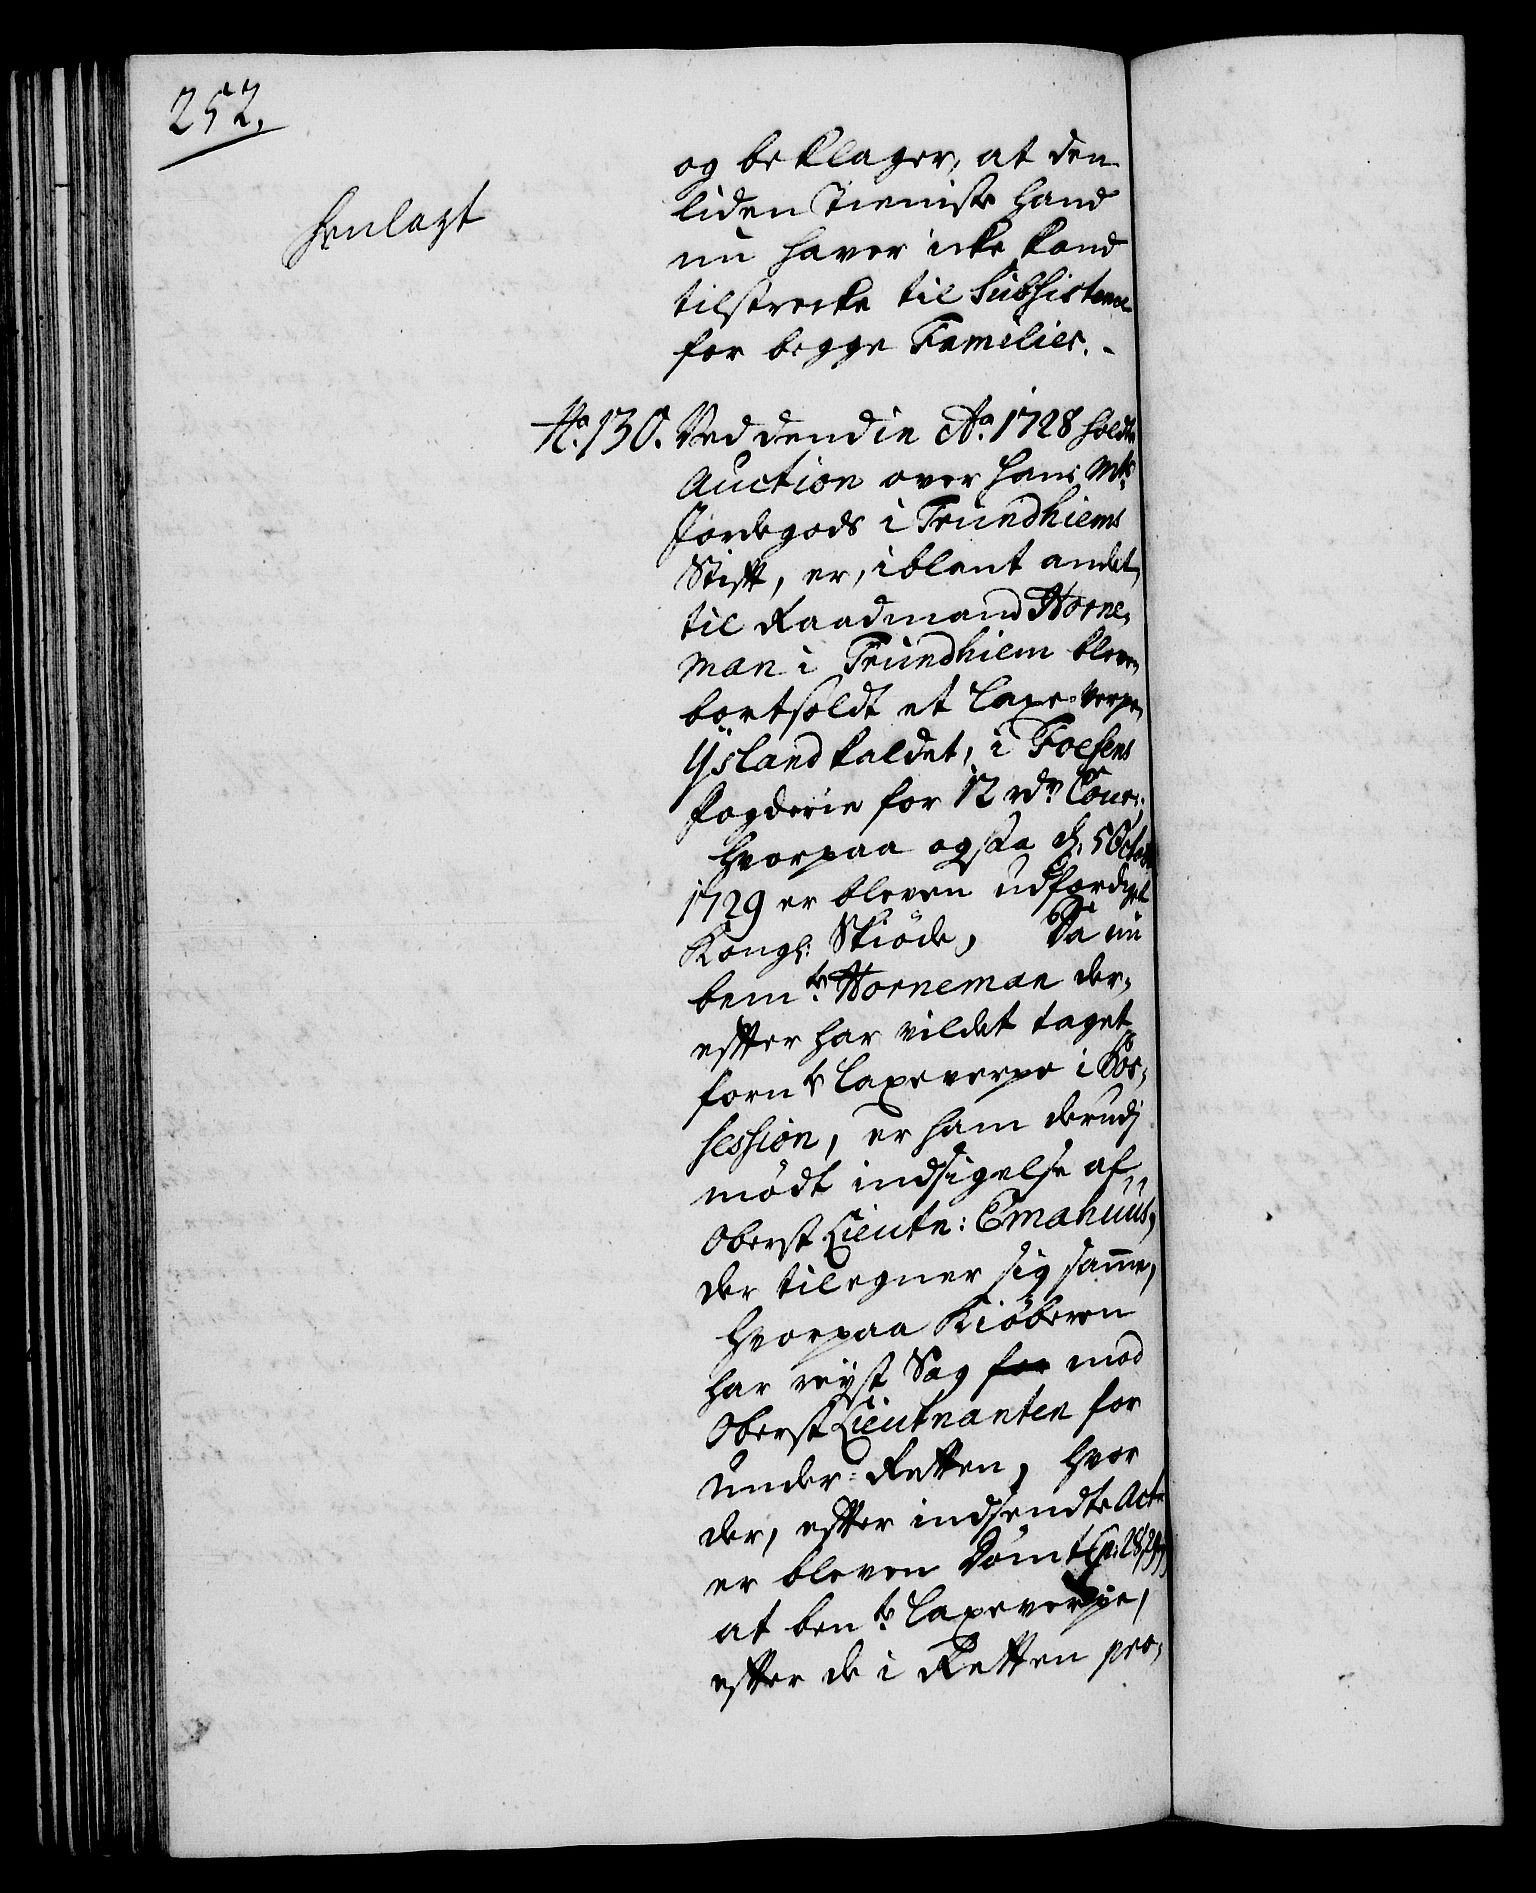 252.
henlagt
og beklager, at den
liden Tieniste hand
nu haver icke kand
tilstrecke til Subsistence
for begge Familier. -
No. 130. Ved den die Ao. 1728 holdte
Auction over hans Mts
Jordegods i Trundhiems
Stift, er, iblant andet,
til Raadmand Horne,
man i Trundhiem bleven
bortsoldt et Laxe-Verpe,
Ysland kaldet, i Foesens
fogderie for 12 rdr Cour:
hvorpaa ogsaa d. 5 Octobr
1729 er bleven udfærdiget
Kongl: Skiöde, Da nu
bemte Horneman der,
efter har vildet taget
fornte Laxeverpe i Pos,
session, er ham derudj
mödt indsigelse af
Oberst Lieutn: Emahuus,
der tilegner sig samme,
hvorpaa Kiöberen
har reyst Sag for mod
Oberst Lieutnanten for
under-Retten, hvor
der, efter indsendte Acte
er bleven Dömt
at bemte Laxeverpe,
efter de i Retten pro,